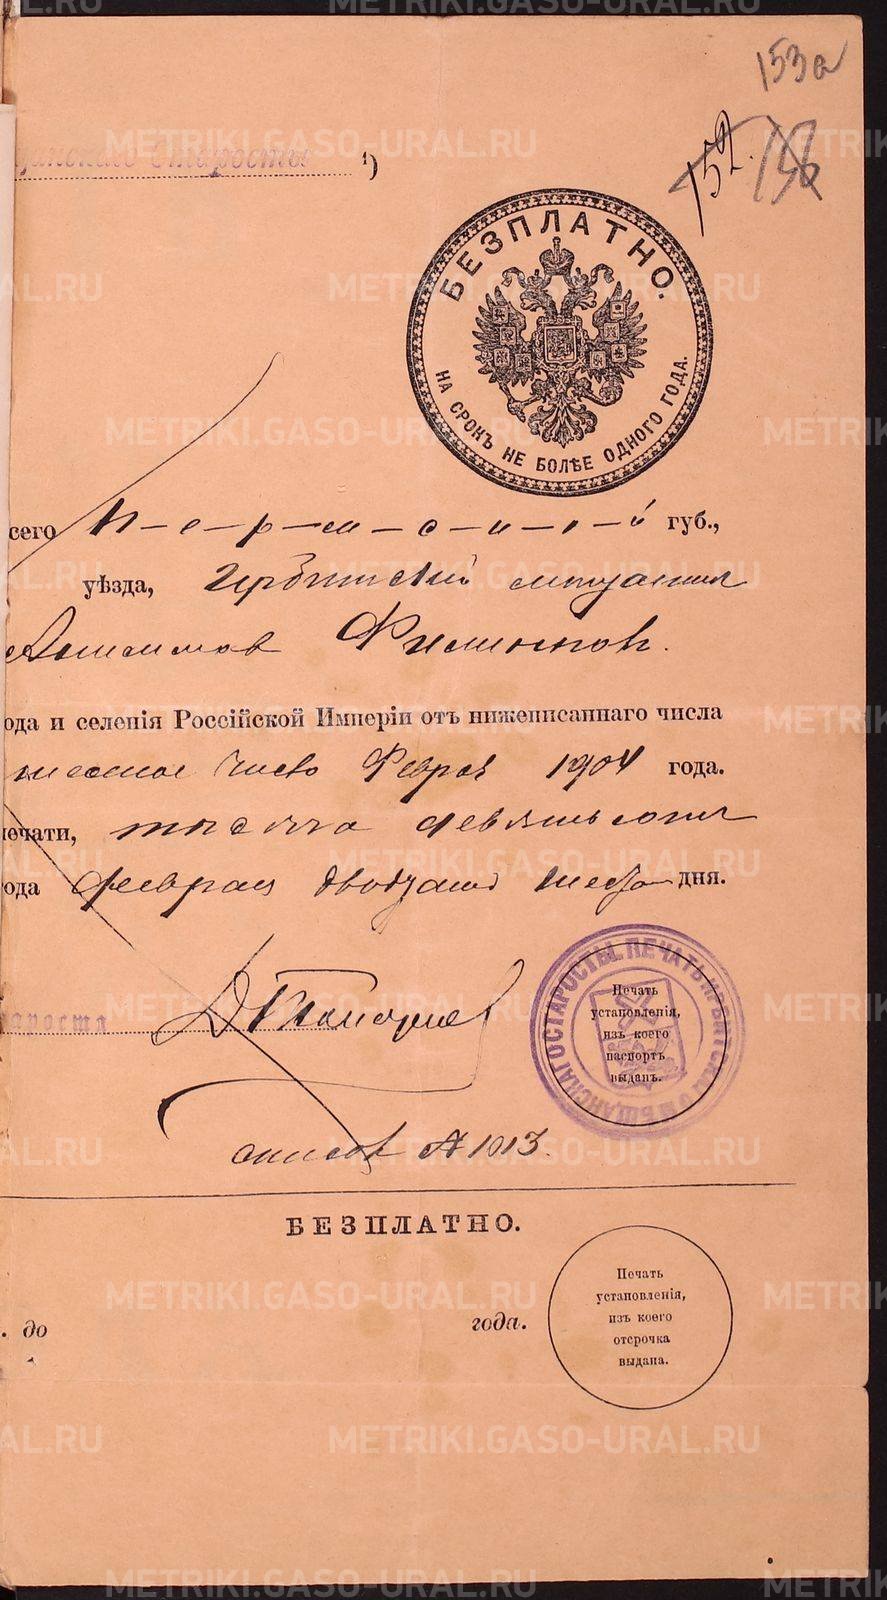 153а
152. 156
щанскаго Старосты ¹)
БЕЗПЛАТНО.
НА СРОКЪ НЕ БОЛѢЕ ОДНОГО ГОДА.
сего П-е-р-м-с-к-о-й губ.,
уѣзда, Ирбитскій мѣщанинъ
Анисимов Филиппов.
ода и селенія Россійской Имперіи отъ нижеписаннаго числа
число Февраля 1904 года.
печати, тысяча девятьсот
ода февраля двадцать шестаго дня.
тароста
Печать
установленія,
изъ коего
паспортъ
выданъ.
ПЕЧАТЬ ИРБИТСКАГО МѢЩАНСКАГО СТАРОСТЫ.
список № 1013.
БЕЗПЛАТНО.
. до года.
Печать
установленія,
изъ коего
отсрочка
выдана.
METRIKI.GASO-URAL.RU